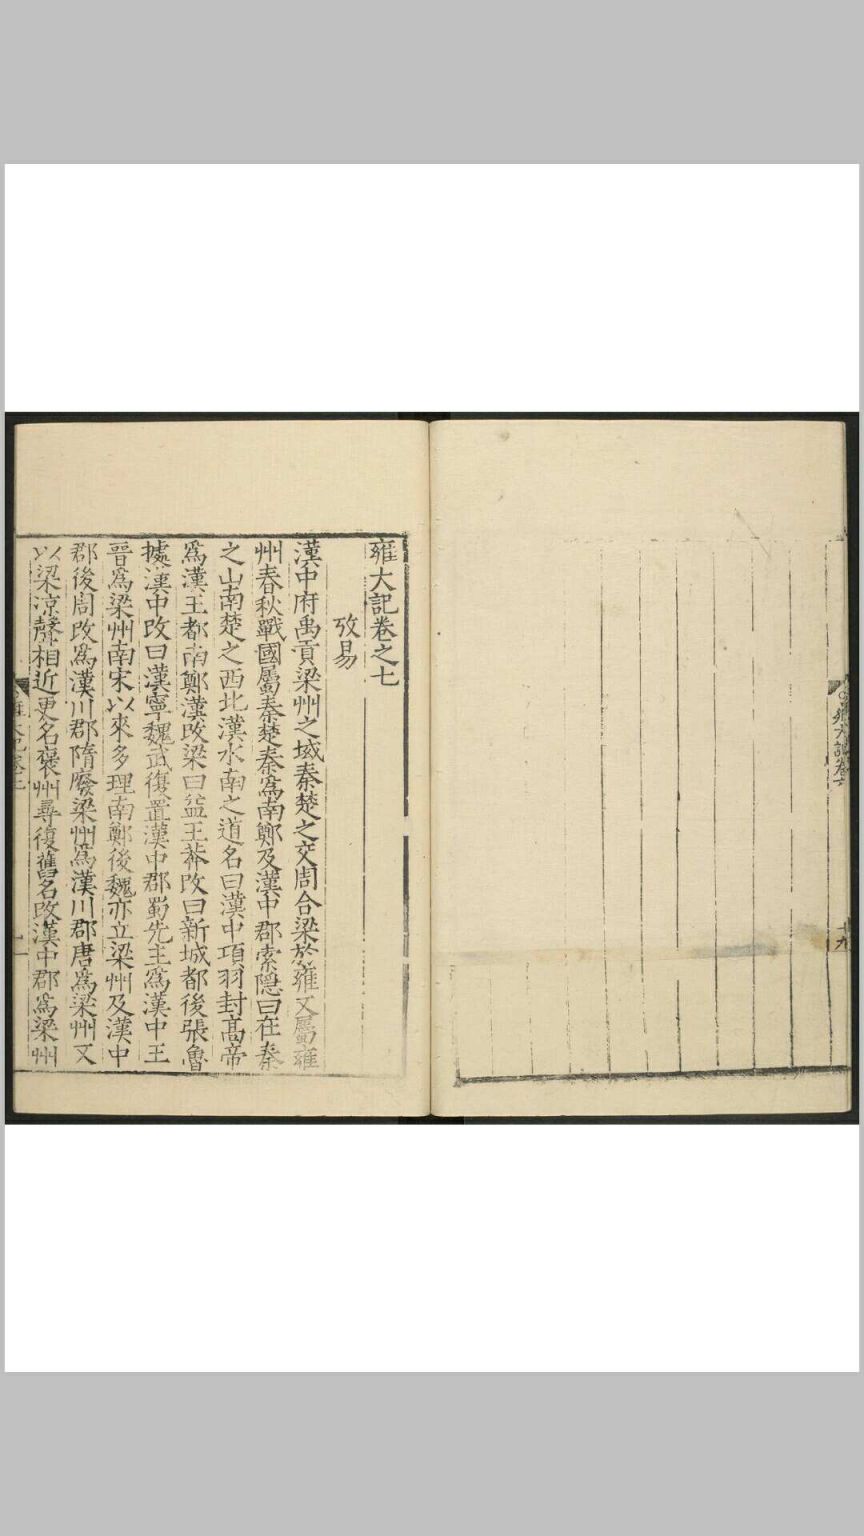 雍大記卷之七
攷易
漢中府禹貢梁州之域秦楚之交周合梁於雍又屬雍
州春秋戰國屬秦楚秦爲南鄭及漢中郡索隱曰在秦
之山南楚之西北漢水南之道名曰漢中項羽封髙帝
爲漢王都南鄭漢改梁曰益王莽改曰新城都後張魯
據漢中改曰漢寧魏武復置漢中郡蜀先主爲漢中王
晉爲梁州南宋以來多理南鄭後魏亦立梁州及漢中
郡後周改爲漢川郡隋廢梁州爲漢川郡唐爲梁州又
以梁凉聲相近更名褒州尋復舊名改漢中郡爲梁州